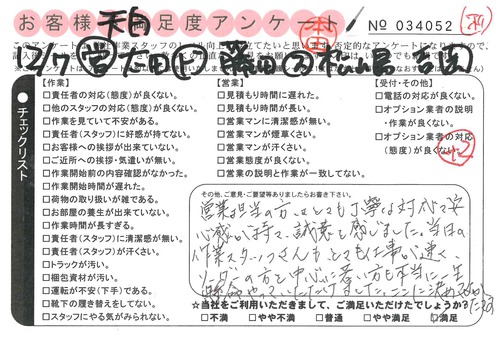 お客様満足度アンケート
天白
№ 034052
【作業】
□責任者の対応(態度)が良くない。
□他のスタッフの対応(態度)が良くない。
□作業を見ていて不安がある。
□責任者(スタッフ)に好感が持てない。
□お客様への挨拶が出来ていない。
□ご近所への挨拶・気遣いが無い。
□作業開始前の内容確認がなかった。
□作業開始時間が遅れた。
□荷物の取り扱いが雑である。
□お部屋の養生が出来ていない。
□作業時間が長すぎる。
□責任者(スタッフ)に清潔感が無い。
□責任者(スタッフ)が汗くさい。
□トラックが汚い。
□梱包資材が汚い。
□運転が不安(下手)である。
□靴下の履き替えをしてない。
□スタッフにやる気がみられない。
【営業】
□見積もり時間に遅れた。
□見積もり時間が長い。
□営業マンに清潔感が無い。
□営業マンが煙草くさい。
□営業マンが汗くさい。
□営業態度が良くない。
□営業の説明と作業が一致してない。
【受付・その他】
□電話の対応が良くない。
□オプション業者の説明
・作業が良くない。
□オプション業者の対応
(態度)が良くない。
●チェックリスト
その他、ご意見・ご要望等ありましたらお書き下さい。
営業担当の方はとても丁寧な対応で安
心感が持て、誠意を感じました。当日の
作業スタッフさんもとても仕事が速く、
リーダーの方を中心に若い方も本当に一生
懸命やっていただけました。ここに決めて
★当社をご利用いただきまして、ご満足いただけたでしょうか？
□不満 □やや不満 □普通 □やや満足 ☑満足